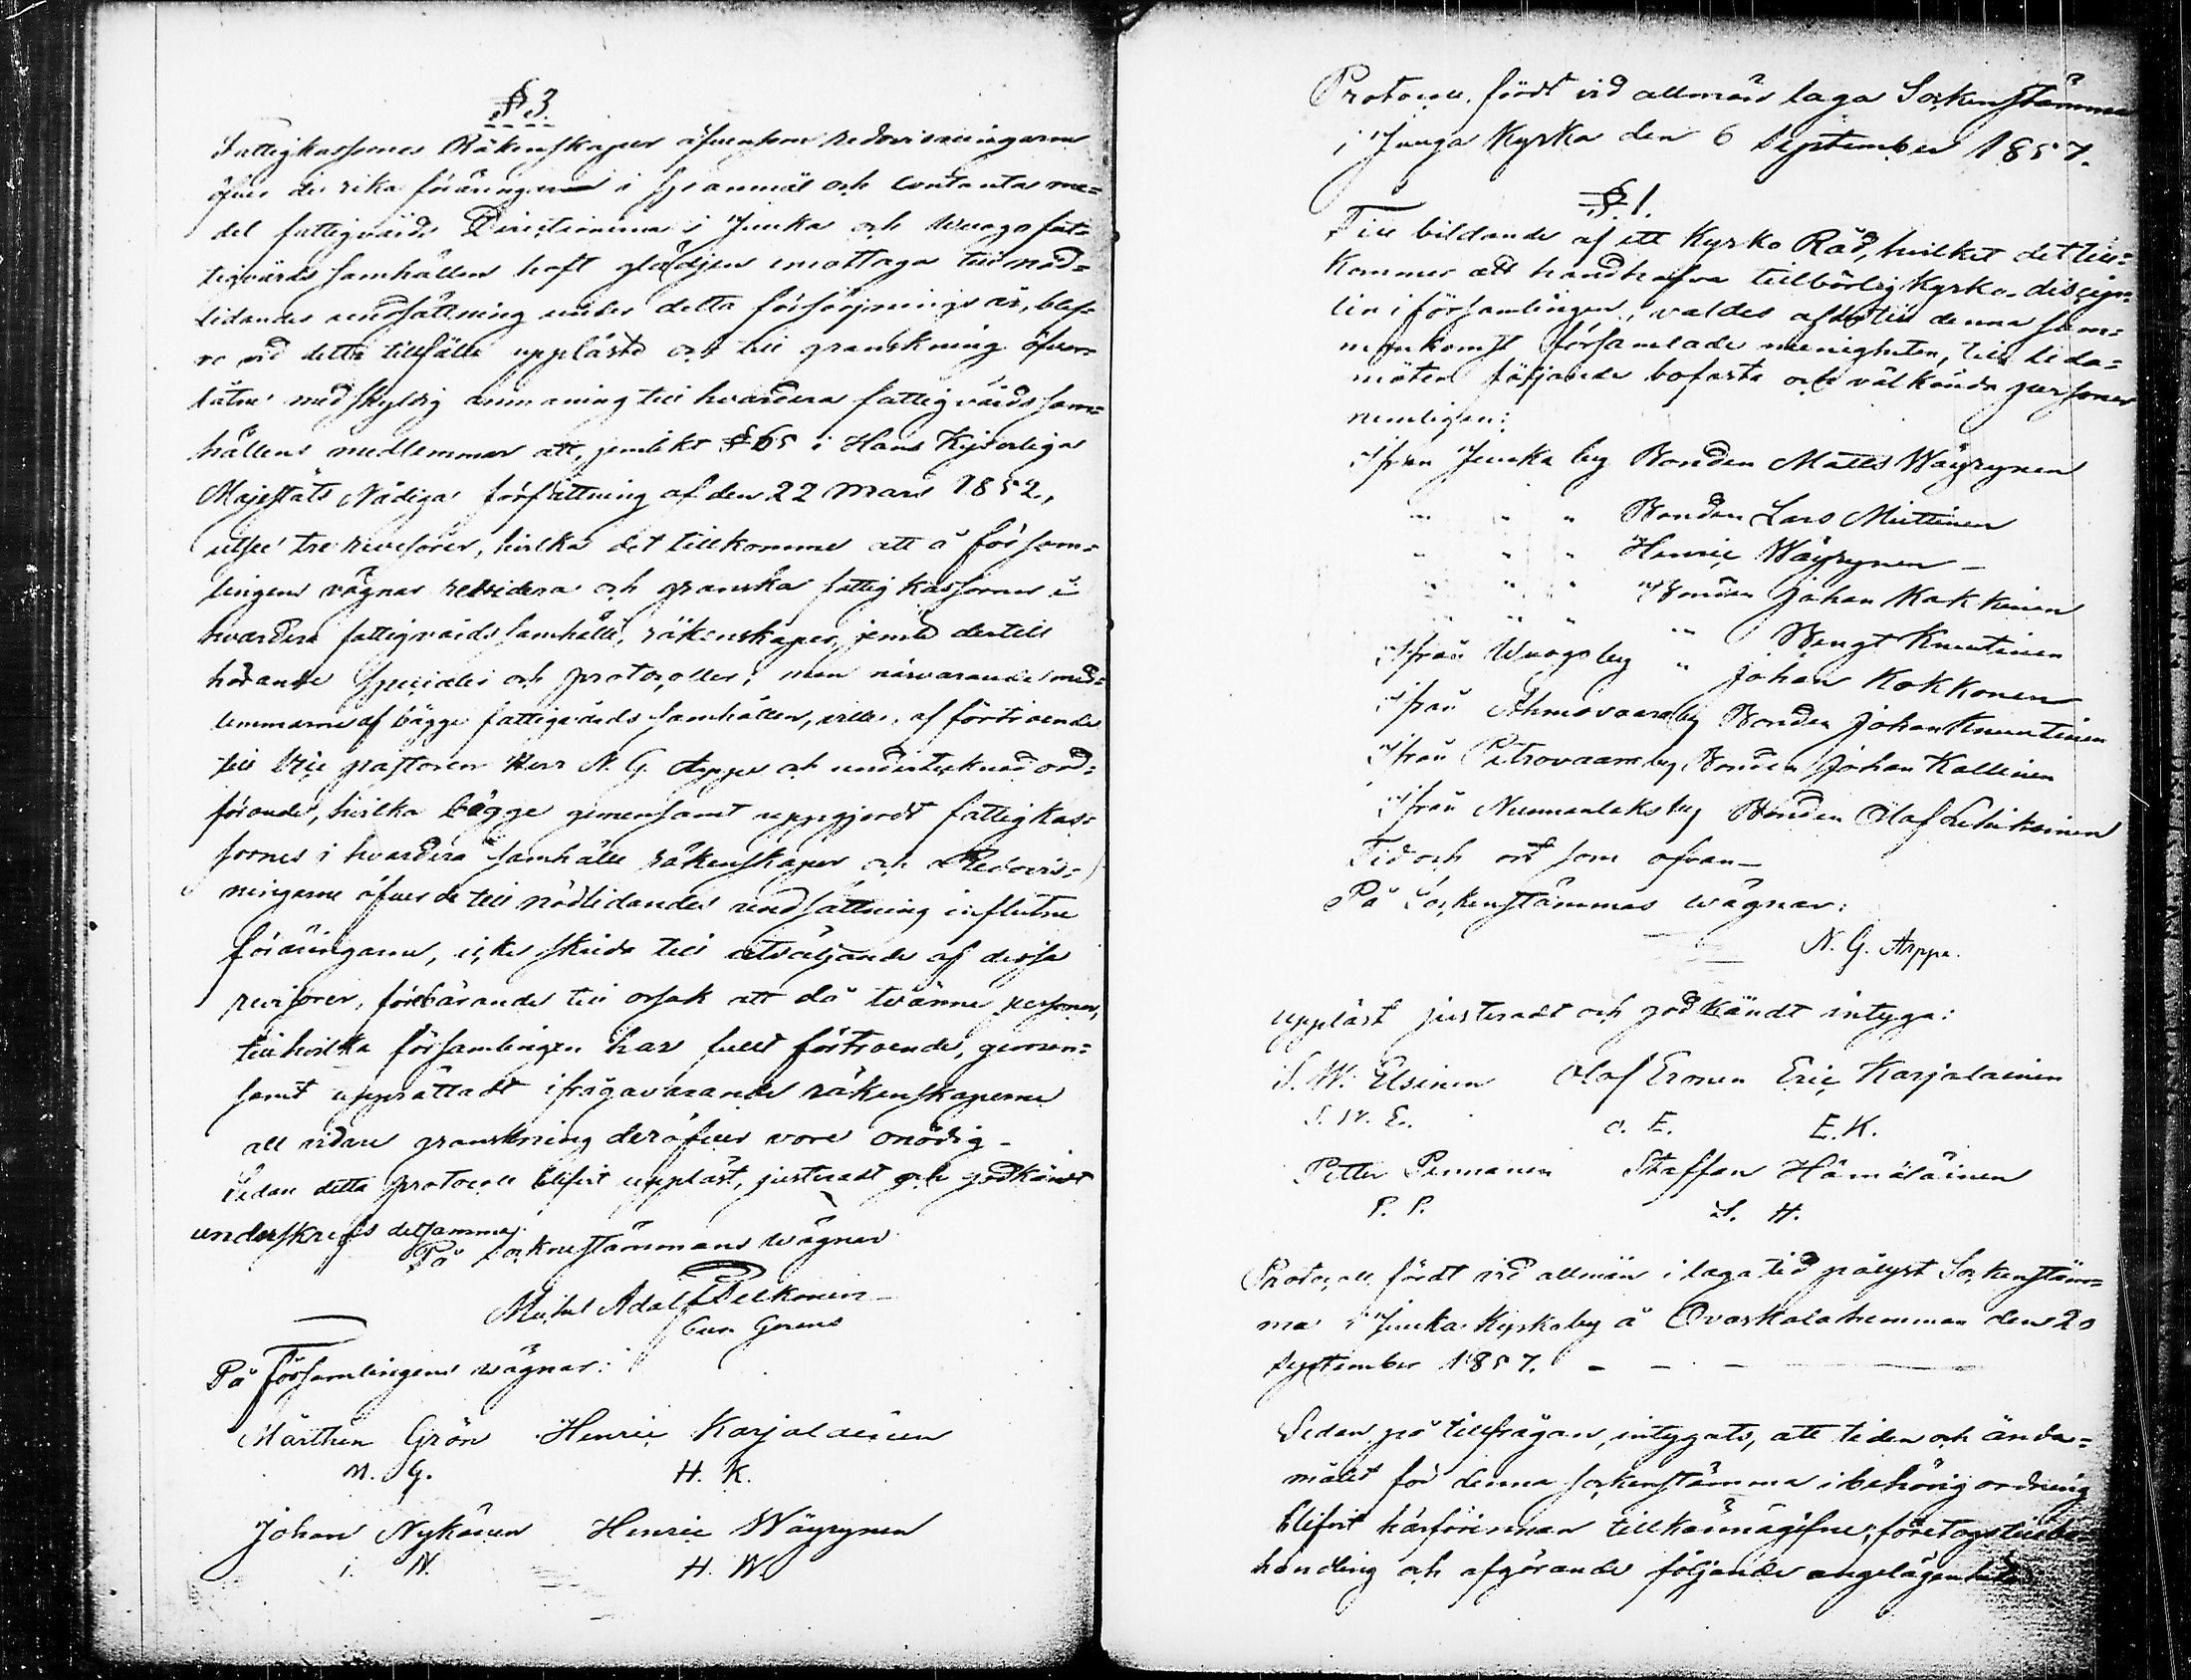 § 3.
Fattigkassornes Räkenskaper äfvensom redovisningarne
öfver de rika föräringarne i spanmål och contanta me=
del fattigvårds Directionerna i Juuka och Wuogo fat=
tigvårds samhällen haft glädjen emottaga till nöd=
lidandes undsättning under detta försörjnings år, blef=
vo vid detta tillfälle uppläste och till granskning öfver=
låtne med skyldig anmaning till hvardera fattigvårds sam=
hällens medlemmar att, jemlikt § 65 i Hans Kejserliga
Majestäts Nådiga författning af den 22 Mars 1852,
utse tre revisorer, hvilka det tillkomme att å försam=
lingens vägnar revidera och granska fattigkassornes i
hvardera fattigvårds samhälle, räkenskaper, jemte dertill
hörande specialer och protocoller; men närvarande med=
lemmarne af bägge fattigvårds samhällen, ville, af förtroende
till Vice pastoren Herr N. G. Arppe och undertecknad ord=
förande, hvilka bägge gemensamt uppgjordt fattigkas=
sornes i hvardera samhälle räkenskaper och Redovis=
ningarne öfver de till nödlidandes undsättning influtne
föräringarne, icke skrida till utväljande af dessa
revisorer, förebärande till orsak att då tvänne personer,
till hvilka församlingen har fullt förtroende, gemen=
samt upprättadt ifrågavarande räkenskaperne
all vidare granskning deröfver vore onödig –
Sedan detta protocoll blifvit uppläst, justeradt och godkändt
underskrefs detsamma.
På sockenstämmans wägnar
Michel Adolf Pelkonen
Cur. Gerens
På församlingens wägnar:
Mårthen Grön Henric Karjalainen
M. G. H. K.
Johan Nykänen Henric Wäyrynen
i. N. H. W
Protocoll, fördt vid allmän laga Sockenstämma
i Juuga Kyrka den 6 September 1857.
§ 1.
Till bildande af ett Kyrko Råd, hvilket det till=
kommer att handhafva tillbörlig Kyrko-discip=
lin i församlingen, valdes af de till denna sam=
mankomst församlade menigheten, till leda=
möter följande bofasta och välkända personer
nemligen:
Ifrån Juuka by Bonden Matts Wäyrynen
" " " Bonden Lars Miettinen
" " " Henric Wäyrynen –
" " " Bonden Johan Kokkonen
" " " " Bengt Knuutinen
Ifrån Wuogo by " Johan Kokkonen
Ifrån Ahmovaara by Bonden Johan Knuutinen
Ifrån Petrovaara by Bonden Johan Kallinen
Ifrån Nunnanlaks by Bonden Olof
Tid och ort som ofvan –
På Sockenstämmas wägnar:
N. G. Arppe.
uppläst justeradt och godkändt intyga:
S. W. Elsinen Olof Eronen Eric Karjalainen
S. W. E. O. E. E. K.
Petter Pennanen Staffan Hämäläinen
P. P. S. H.
Protocoll fördt vid allmän i laga tid pålyst Sockenstäm=
ma i Juuka Kyrkoby å Ovaskala hemman den 20
September 1857. – – –
Sedan på tillfrågan, intygats, att tiden och ända=
målet för denna sockenstämma i behörig ordning
blifvit härförinnan tillkännagifne; företogs till be=
handling och afgörande följande angelägenheter